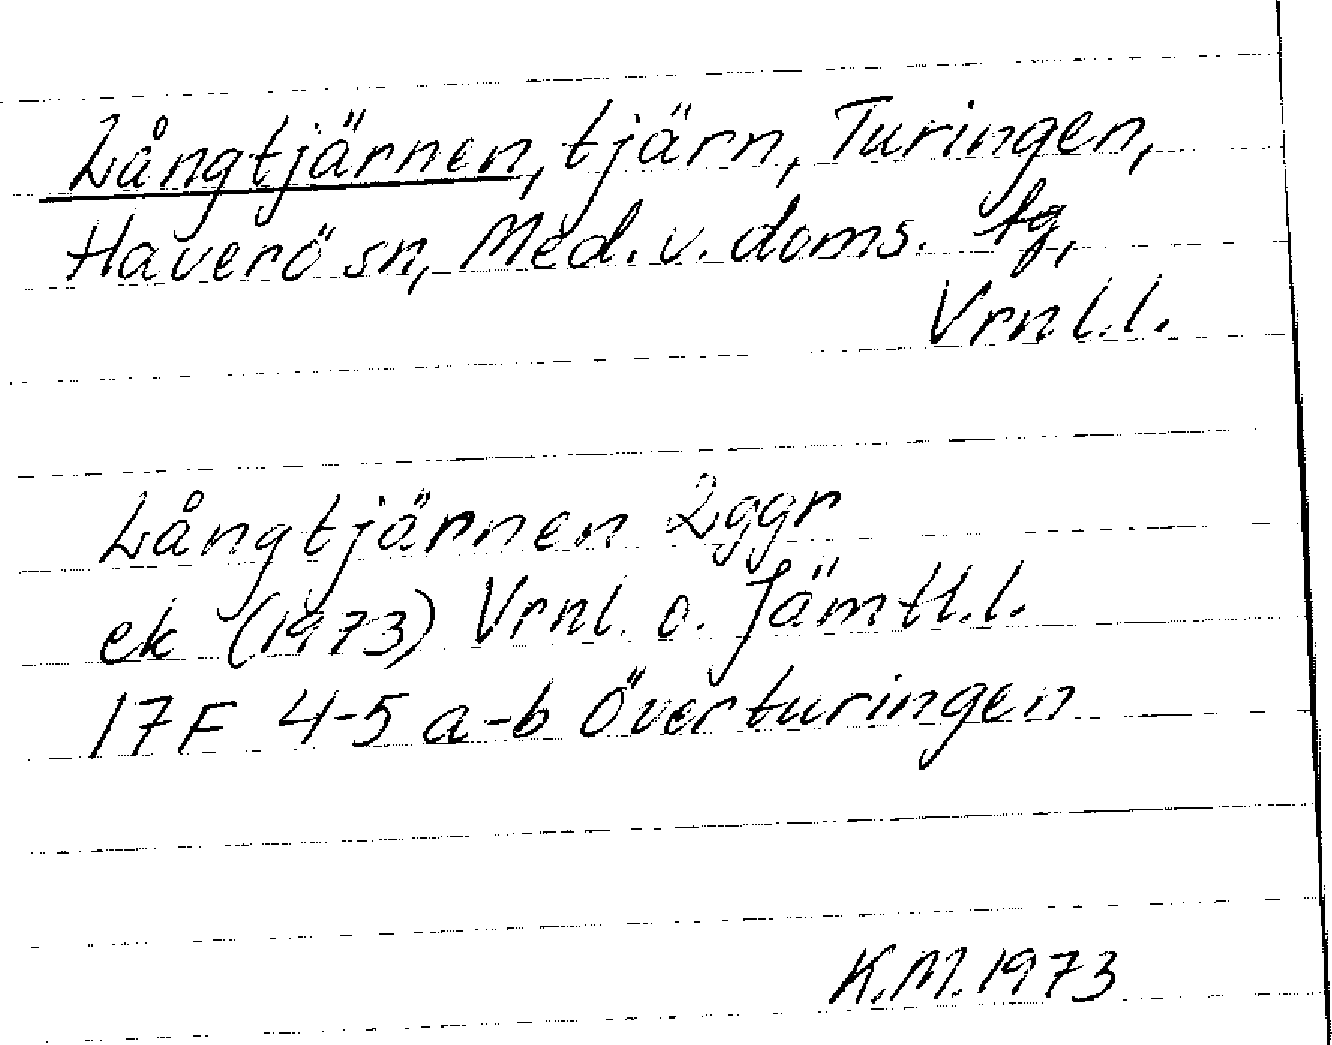 Långtjärnen, tjärn, Turingen,
Haverö sn, Med. v. doms. tg,
Vrnl.l.
Långtjärnen 2ggr
ek (1973) Vrnl. o. Jämtl.l.
17F 4-5 a-b Överturingen
K.M. 1973